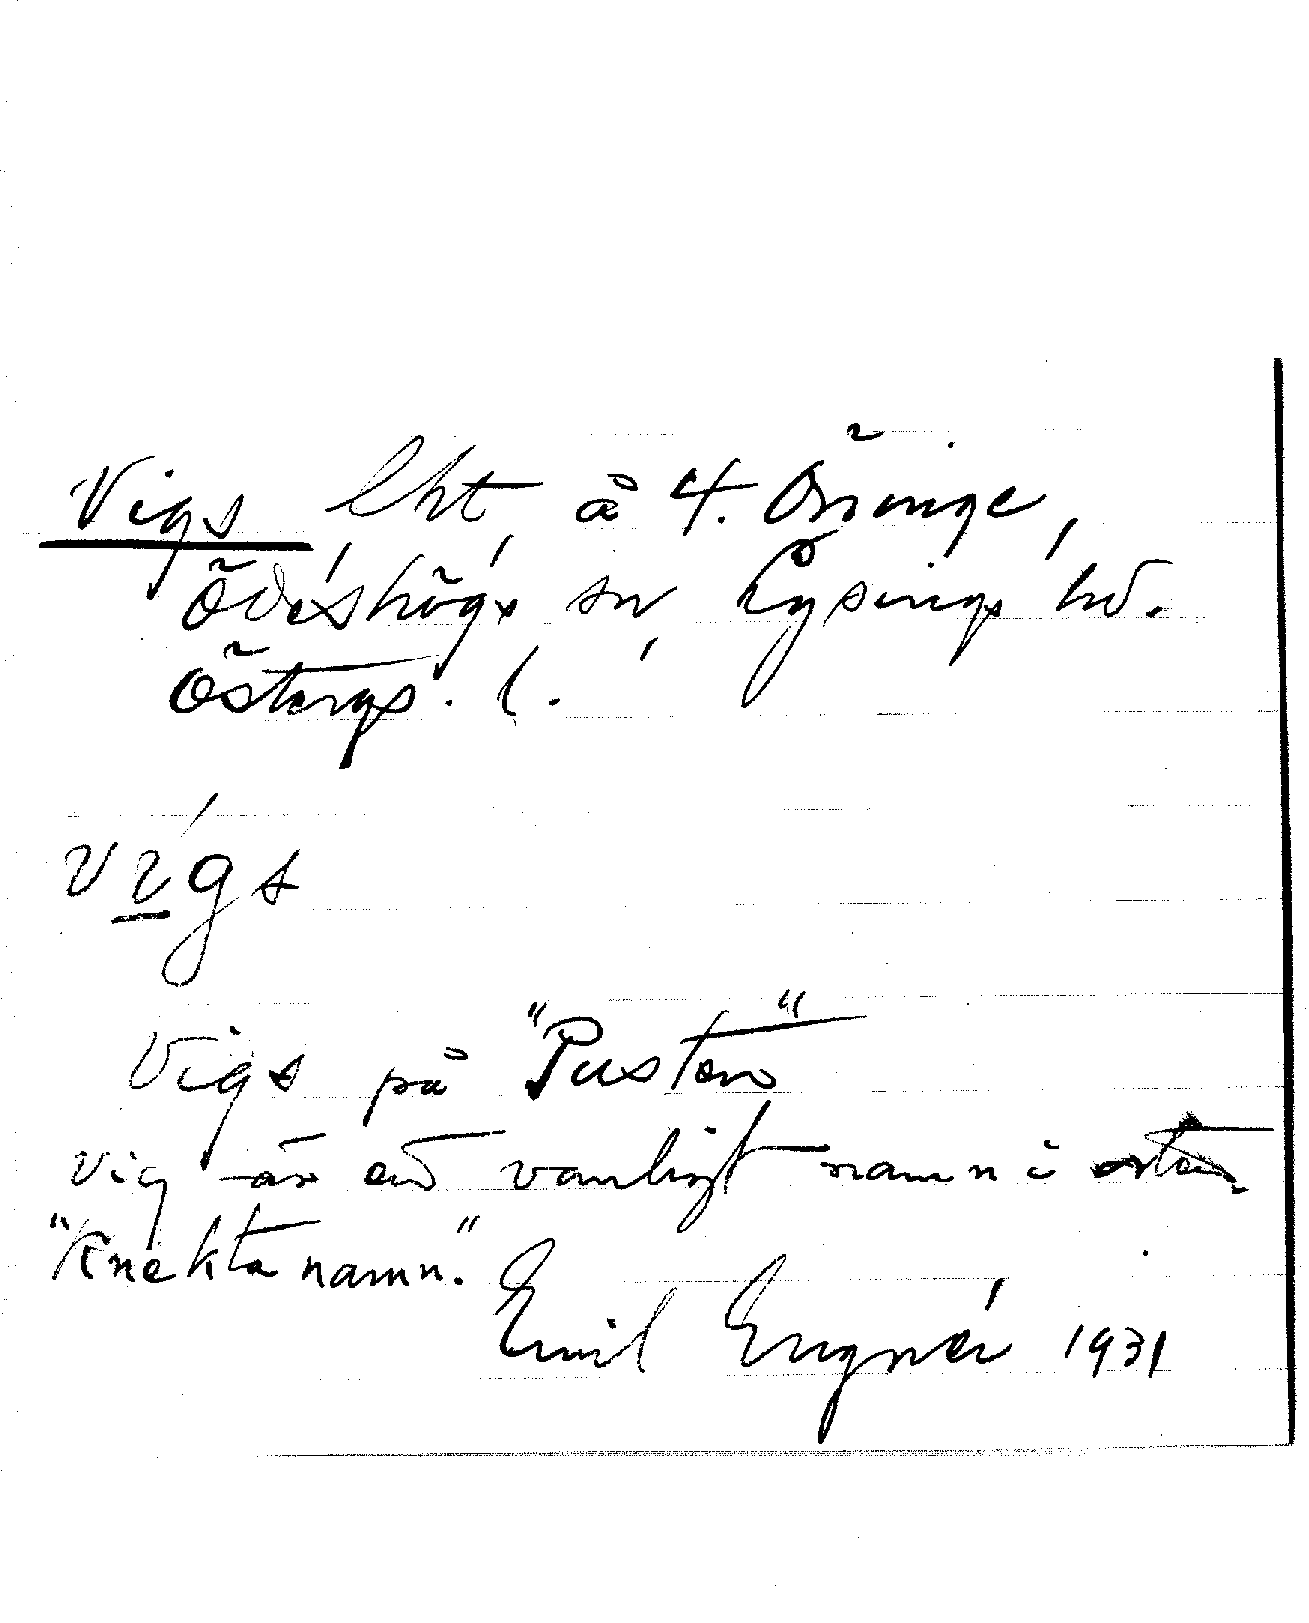 Vigs lht, å 4. Öringe,
Ödeshögs sn, Lysings hd.
Östergs. l.
vigs
Vigs på "Pusten"
Vig är ett vanligt namn i
"Knektanamn."
Emil Engnér 1931